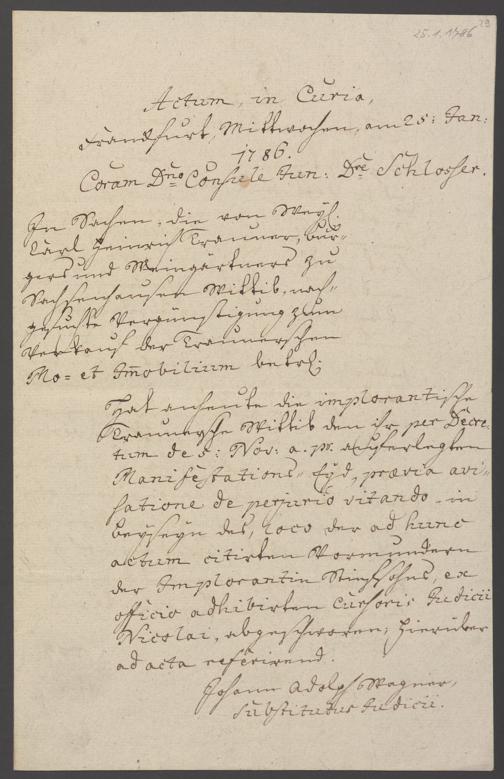 25.1.1786
29
Actum, in Curia,
Franckfurt, Mittwochen, am 25: Jan:
1786.
Coram Dno Consule Jun: Dre Schlosser.
In Sachen, die von Weyl.
Carl Heinrich Trauner, bur-
gers und Weingärtners zu
Sachsenhausen Wittib, nach-
gesuchte Vergünstigung zum
Verkauf der Traunerschen
Mo= et Im̄obilium betrl:
Hat anheute die implorantische
Traunersche Wittib den ihr, per Decre-
tum de 5: Nov: a. pr. auferlegten
Manifestations=Eyd, praevia avi-
satione de perjurio vitando, in
beyseyn des, loco der ad hunc
actum citirten Vormundern
der Implorantin Stiefsohns, ex
officio adhibirten Cursoris Judicii
Nicolai, abgeschworen; hierüber
ad acta referirend.
Johann Adolph Wagner,
Substitutus Judicii.